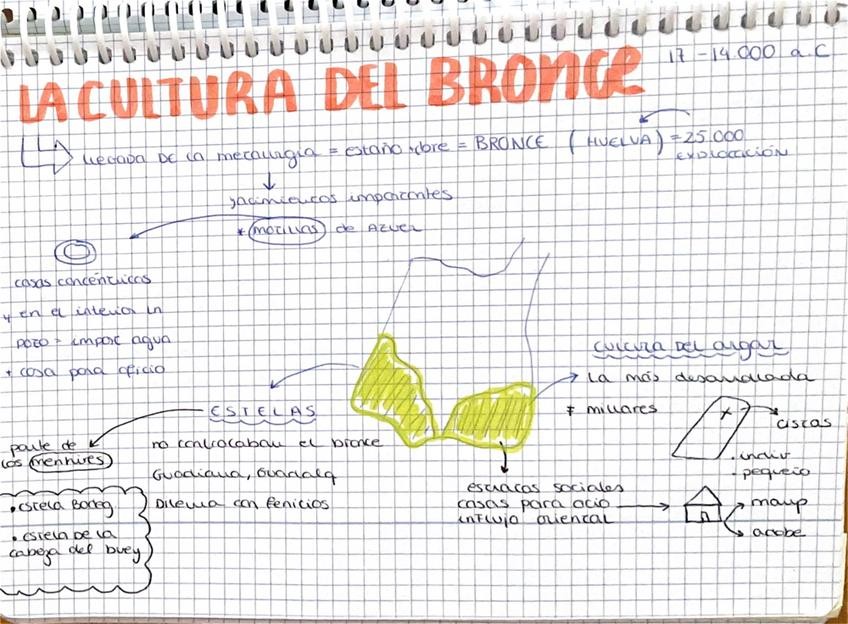 17 - 14.000 a.C
LA CULTURA DEL BRONCE
llegada DE la metalurgia = estaño + cobre = BRONCE (HUELVA) = 25.000
EXPLOTACIÓN
yacimientos importantes
* motillas de AZUER
casas concéntricas
y en el interior un
pozo = import agua
+ cosa para oficio
CULTURA DEL argar
La más desarrollada
≠ millares
ciscas
. indiv
- pequeño
ESTELAS
parte de
los menhires
no controlaban el bronce
Guadiana, Guadalq
Dilema con fenicios
• estela
• estela DE la
cabeza del buey
estratos sociales
casas para ocio
influjo oriental
mamp
adobe